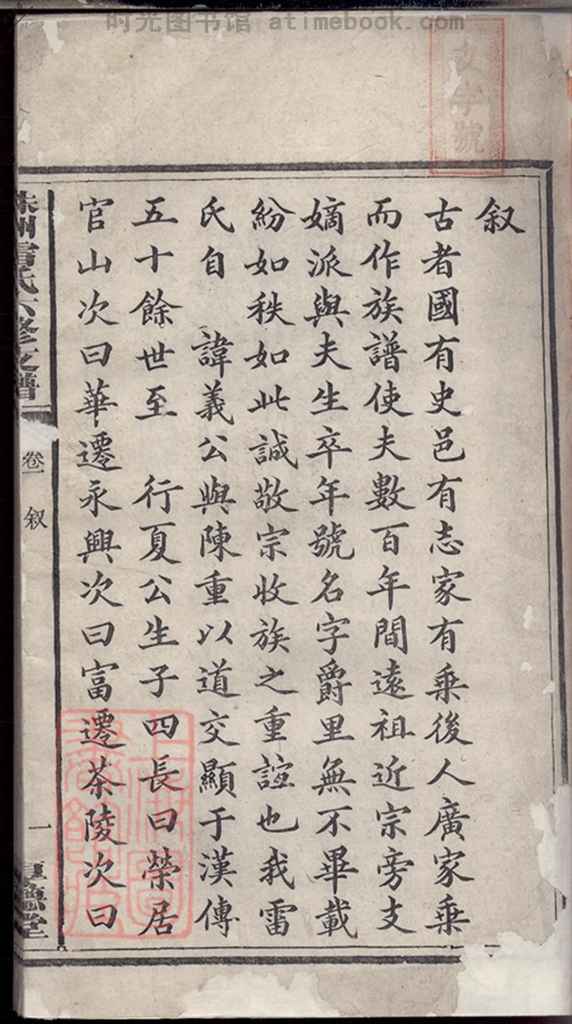 时光图书馆 atimebook.com
文字號
叙
古者國有史邑有志家有乘後人廣家乘
而作族譜使夫數百年間遠祖近宗旁支
嫡派與夫生卒年號名字爵里無不畢載
紛如秩如此誠敬宗收族之重諠也我雷
氏自 諱義公與陳重以道交顯于漢傳
五十餘世至 行夏公生子四長曰榮居
官山次曰華遷永興次曰富遷茶陵次曰
株州雷氏六修支譜
卷一 叙
一